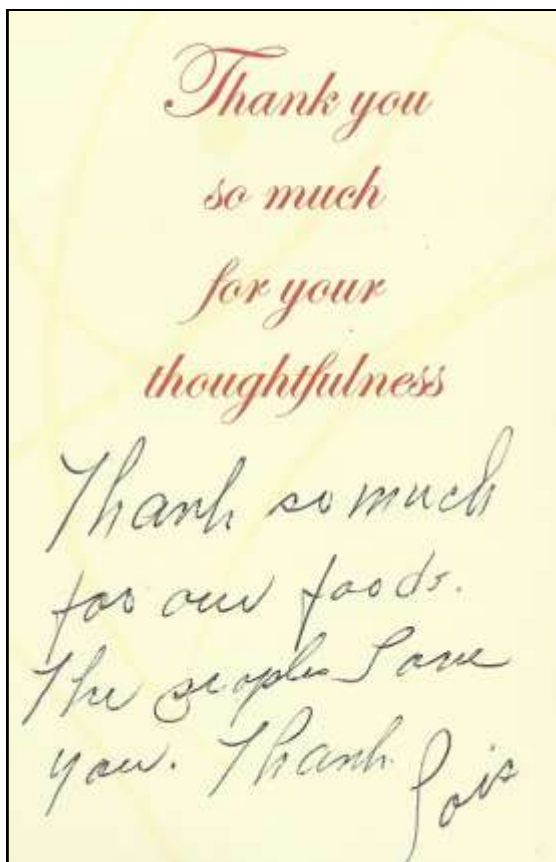 Thank you
so much
for your
thoughtfulness
Thank so much
for our foods.
The peoples Love
you. Thank
Lois